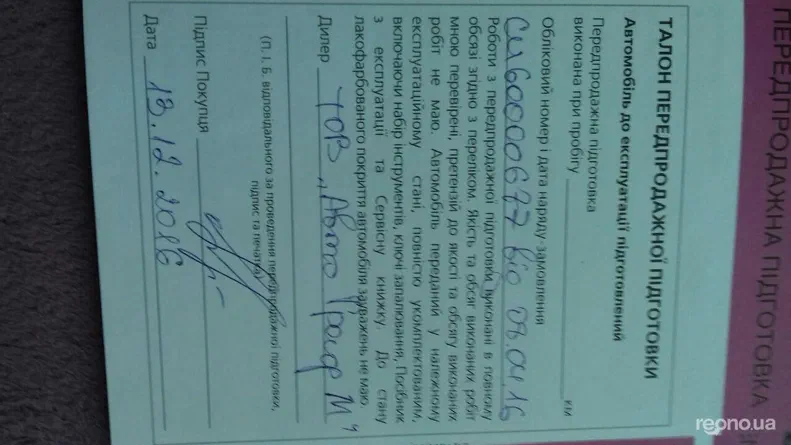 ПЕРЕДПРОДАЖНА ПІДГОТОВКА
ТАЛОН ПЕРЕДПРОДАЖНОЇ ПІДГОТОВКИ
Автомобіль до експлуатації підготовлений
Передпродажна підготовка
виконана при пробігу км
Обліковий номер і дата наряду-замовлення
від 08.04.16
Роботи з передпродажної підготовки виконані в повному
обсязі згідно з переліком. Якість та обсяг виконаних робіт
мною перевірені, претензій до якості та обсягу виконаних
робіт не маю. Автомобіль переданий у належному
експлуатаційному стані, повністю укомплектованим,
включаючи набір інструментів, ключі запалювання, Посібник
з експлуатації та Сервісну книжку. До стану
лакофарбованого покриття автомобіля зауважень не маю.
Дилер ТОВ „Авто Граф М"
(П. І. Б. відповідального за проведення передпродажної підготовки,
підпис та печатка)
Підпис Покупця
Дата 13.12.2016
reono.ua